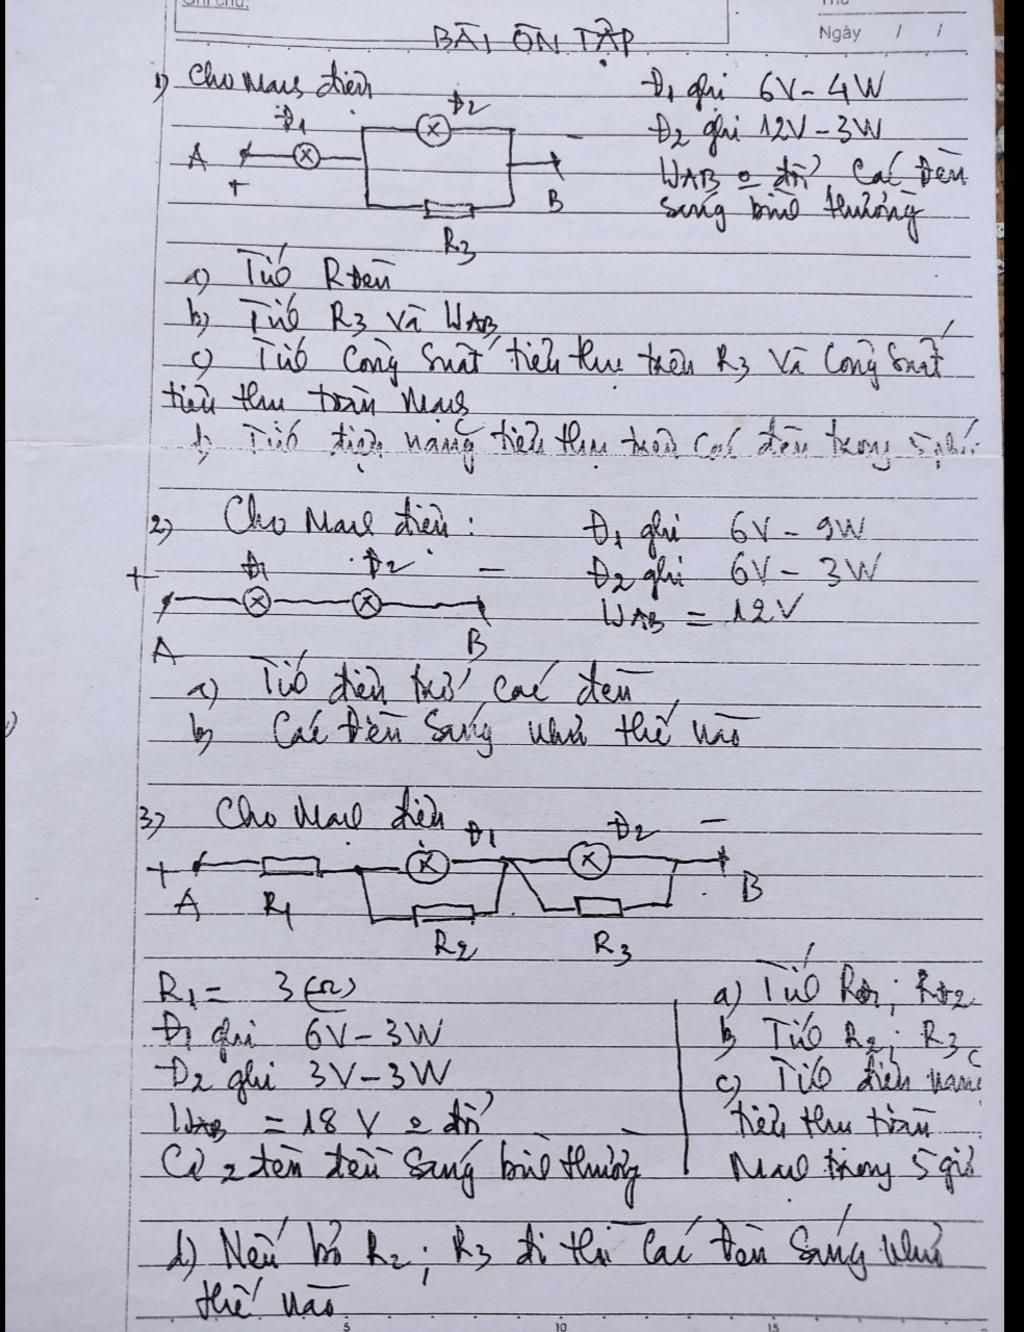 Ghi chú:
Thứ
Ngày / /
BÀI ÔN TẬP
1) Cho mạch điện
Đ1 ghi 6V - 4W
Đ2 ghi 12V - 3W
UAB o đổi Các Đèn
sáng bình thường
Đ1
Đ2
A
+
-
B
R3
a) Tính RĐèn
b) Tính R3 và UAB
c) Tính Công Suất tiêu thụ trên R3 và Công Suất
tiêu thụ toàn mạch
d) Tính điện năng tiêu thụ trên các đèn trong 5 phút
2) Cho mạch điện:
Đ1 ghi 6V - 9W
Đ2 ghi 6V - 3W
UAB = 12V
+
Đ1
Đ2
-
A
B
a) Tính điện trở các đèn
b) Các Đèn Sáng như thế nào
3) Cho mạch điện
Đ1
Đ2
-
+
A
R1
R2
R3
B
R1 = 3 (Ω)
Đ1 ghi 6V - 3W
Đ2 ghi 3V - 3W
UAB = 18 V o đổi
Cả 2 đèn đều Sáng bình thường
a) Tính RĐ1; RĐ2
b) Tính R2; R3
c) Tính điện năng
tiêu thụ toàn
Mạch trong 5 giờ
d) Nếu bỏ R2; R3 đi thì Các Đèn Sáng như
thế nào
5
10
15